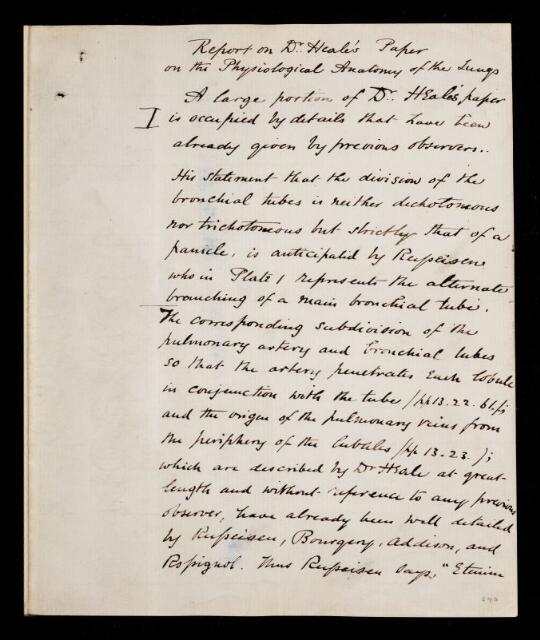 Report on Dr. Heale's Paper
on the Physiological Anatomy of the Lungs
A large portion of Dr. HEale's paper
is occupied by details that have been
already given by previous observers..
His statement that the division of the
bronchial tubes is neither dichotomous
nor trichotomous but strictly that of a
panicle, is anticipated by Reifseisen
who in Plate 1 represents the alternate
branching of a main bronchial tube.
The corresponding subdivision of the
pulmonary artery and bronchial tubes
so that the artery penetrates each lobule
in conjunction with the tube (pp 13. 22. 61.);
and the origin of the pulmonary veins from
the periphery of the lobules (pp 13. 23.);
which are described by Dr Heale at great
length and without reference to any previous
observer, have already been well detailed
by Reifseisen, Bourgery, Addison, and
Rossignol. Thus Reifseisen says, "Etenim